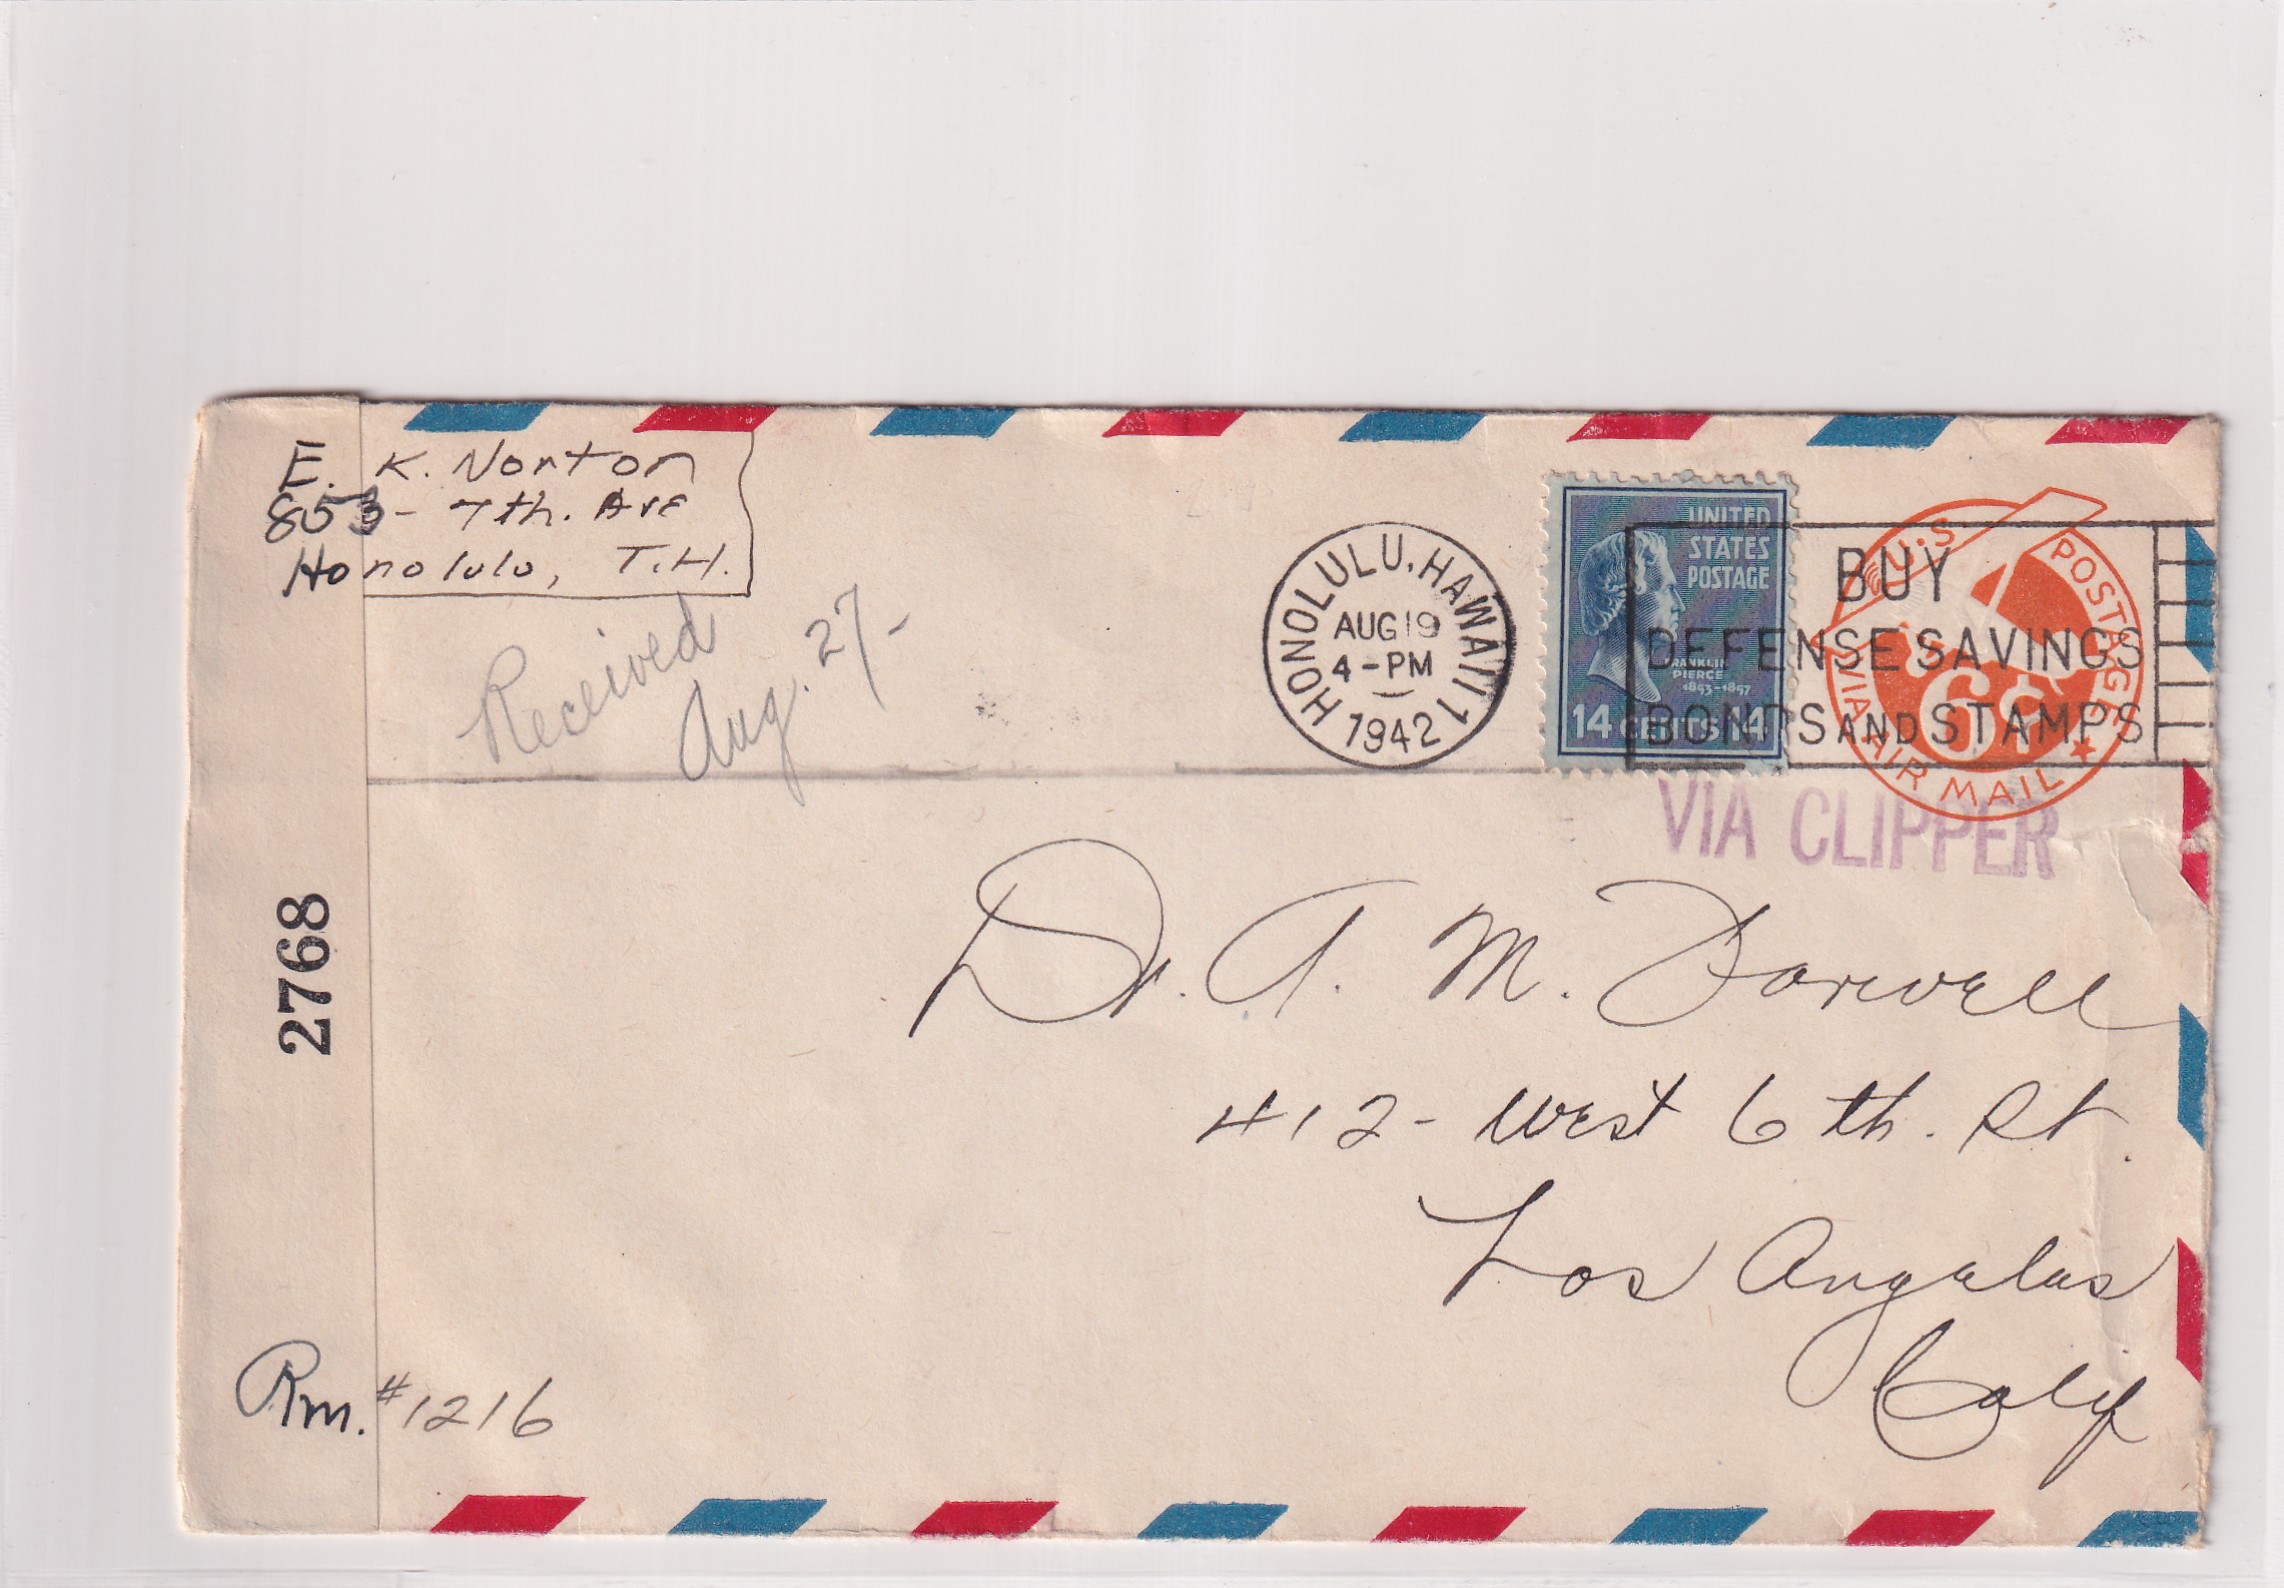 E. K. Norton
853 - 7th. Ave
Honolulu, T.H.
Received
Aug. 27-
HONOLULU, HAWAII 1
AUG 19
4-PM
1942
UNITED
STATES
POSTAGE
FRANKLIN
PIERCE
1853-1857
14 CENTS 14
BUY
DEFENSE SAVINGS
BONDS AND STAMPS
U.S. POSTAGE
6¢
VIA AIR MAIL
VIA CLIPPER
2768
Dr. A. M. Farwell
412 - West 6th. St.
Los Angeles
Calif
Rm. #1216